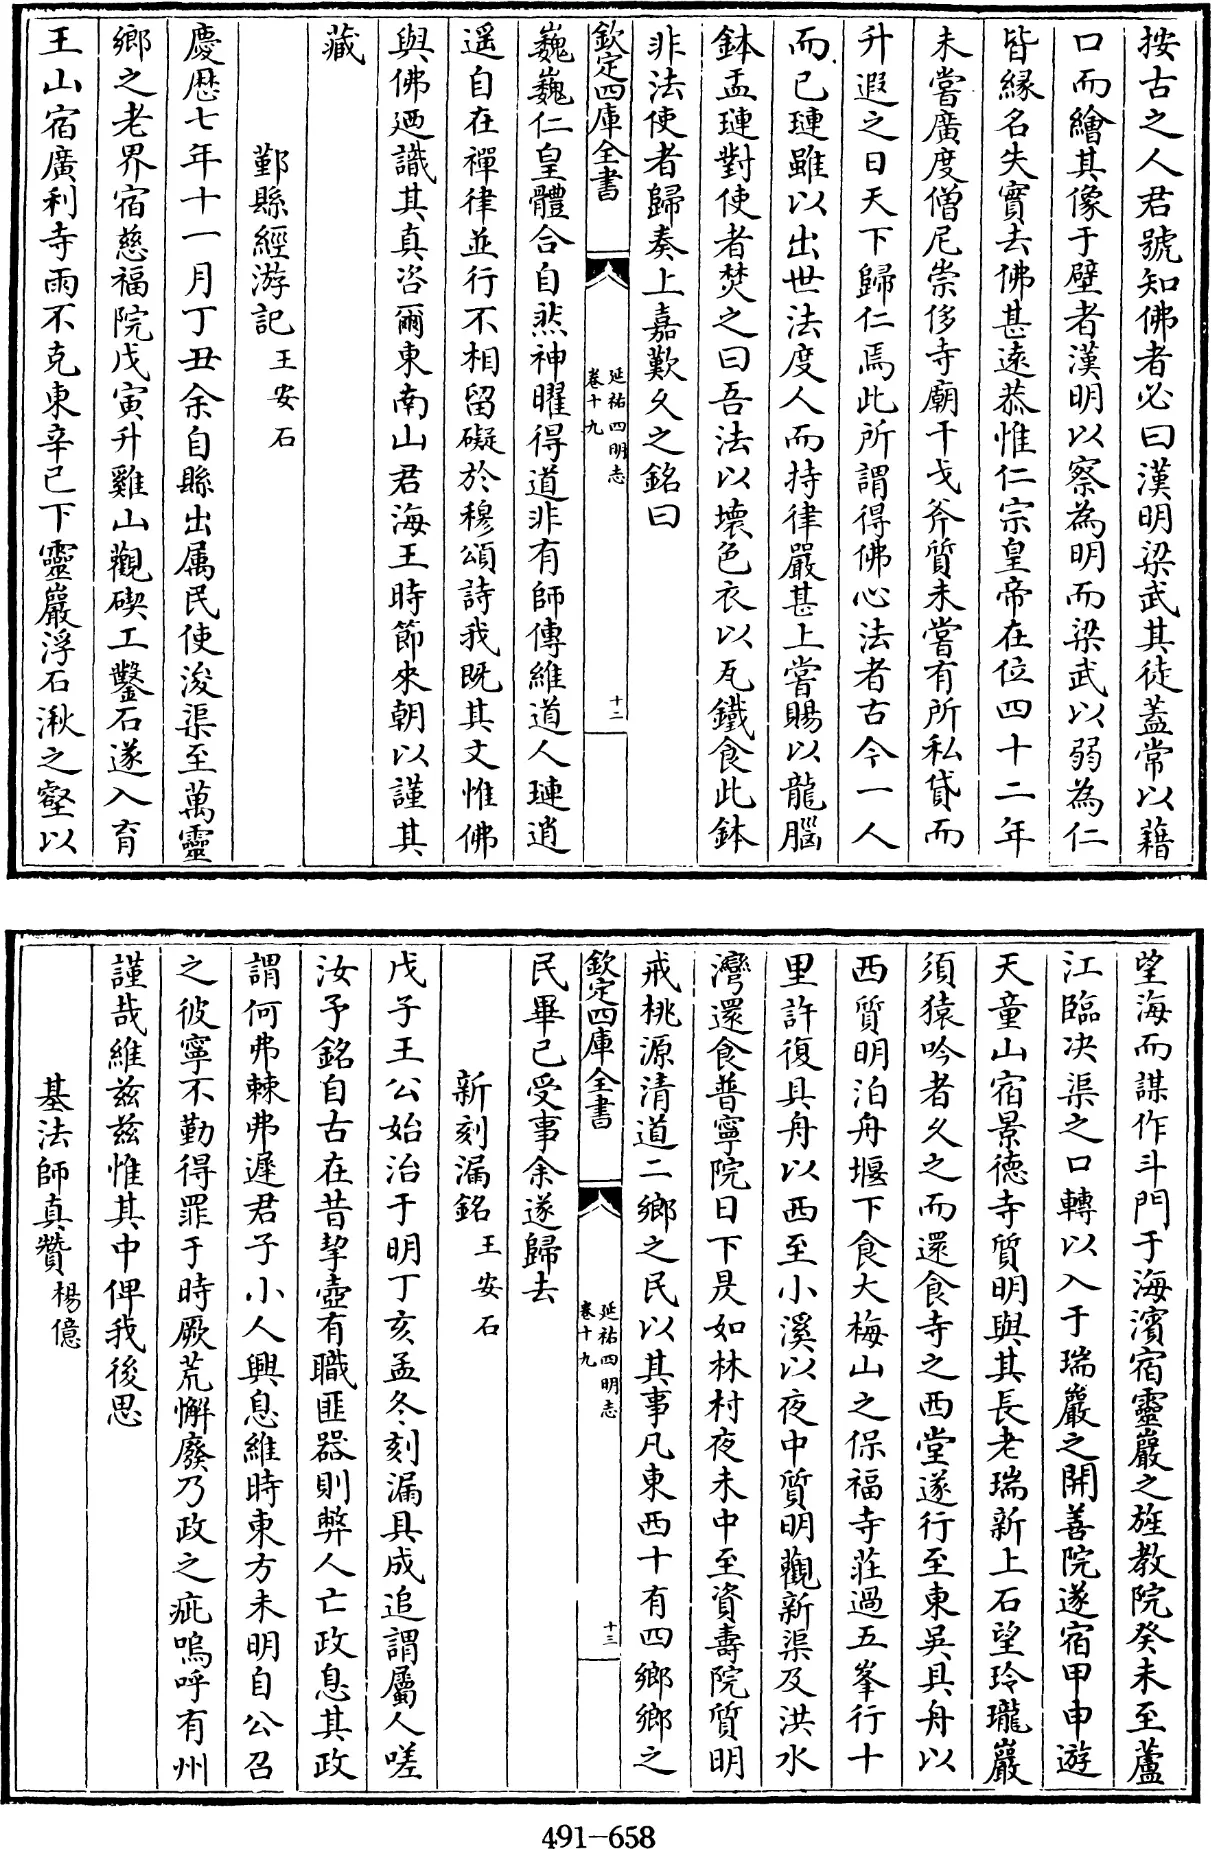 按古之人君號知佛者必曰漢明梁武其徒蓋常以藉
口而繪其像于壁者漢明以察為明而梁武以弱為仁
皆緣名失實去佛甚逺恭惟仁宗皇帝在位四十二年
未嘗廣度僧尼崇侈寺廟干戈斧質未嘗有所私貸而
升遐之日天下歸仁焉此所謂得佛心法者古今一人
而已璉雖以出世法度人而持律嚴甚上嘗賜以龍腦
鉢盂璉對使者焚之曰吾法以壊色衣以瓦鐵食此鉢
非法使者歸奏上嘉歎久之銘曰
欽定四庫全書
延祐四明志
卷十九
十二
巍巍仁皇體合自然神曜得道非有師傳維道人璉逍
遥自在禪律並行不相留礙於穆頌詩我既其文惟佛
與佛廼識其真咨爾東南山君海王時節來朝以謹其
藏
鄞縣經游記王安石
慶歴七年十一月丁丑余自縣出属民使浚渠至萬靈
鄉之老界宿慈福院戊寅升雞山觀碶工鑿石遂入育
王山宿廣利寺雨不克東辛巳下靈巖浮石湫之壑以
望海而謀作斗門于海濱宿靈巖之旌教院癸未至蘆
江臨决渠之口轉以入于瑞巖之開善院遂宿甲申遊
天童山宿景德寺質明與其長老瑞新上石望玲瓏巖
須猿吟者久之而還食寺之西堂遂行至東吳具舟以
西質明泊舟堰下食大梅山之保福寺莊過五峯行十
里許復具舟以西至小溪以夜中質明觀新渠及洪水
灣還食普寧院日下昃如林村夜未中至資壽院質明
戒桃源清道二鄉之民以其事凡東西十有四鄉鄉之
欽定四庫全書
延祐四明志
卷十九
十三
民畢已受事余遂歸去
新刻漏銘王安石
戊子王公始治于明丁亥孟冬刻漏具成追謂屬人嗟
汝予銘自古在昔挈壺有職匪器則弊人亡政息其政
謂何弗棘弗遲君子小人興息維時東方未明自公召
之彼寧不勤得罪于時厥荒懈廢乃政之疵嗚呼有州
謹哉維兹兹惟其中俾我後思
基法師真贊楊億
491-658